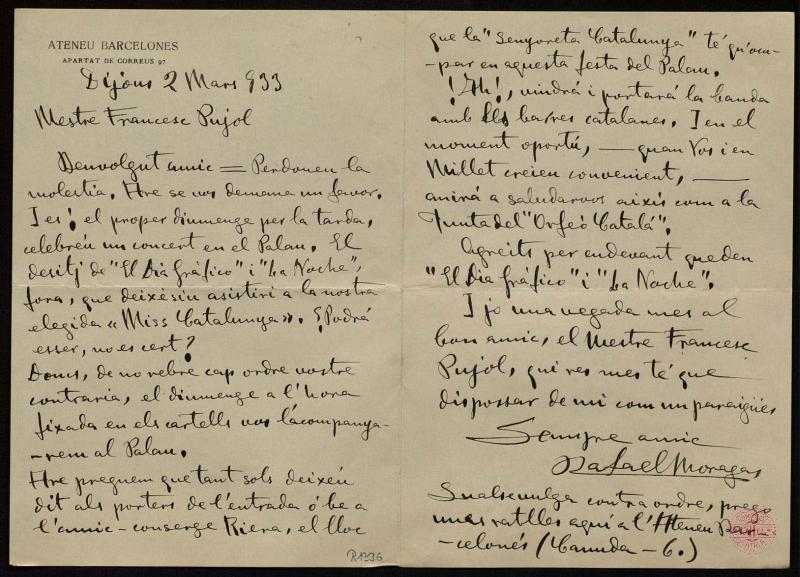 ATENEU BARCELONES
APARTAT DE CORREUS 97
Dijous 2 Mars 933
Mestre Francesc Pujol
Benvolgut amic = Perdonen la
molestia. Are se vos demana un favor.
I es! el proper diumenge per la tarda,
celebréu un concert en el Palau. El
desitj de "El Dia Gráfico" i "La Noche",
fora, que deixèsiu asistiri a la nostra
elegida «Miss Catalunya». ¿Podrá
esser, no es cert?
Doncs, de no rebre cap ordre vostre
contraria, el diumenge a l'hora
fixada en els cartells vos l'acompanya-
-rem al Palau.
Are preguem que tant sols deixéu
dit als porters de l'entrada ó be a
l'amic-conserge Riera, el lloc
que la "Senyoreta Catalunya" té qu'ocu-
-par en aquesta festa del Palau.
¡Ah!, vindrá i portará la banda
amb les barres catalanes. I en el
moment oportú, — quan Vos i en
Millet creieu convenient, —
anirá a saludarvos aixís com a la
Junta del "Orfeó Catalá".
Agreits per endevant queden
"El Dia Gráfico" i "La Noche".
I jo una vegada mes al
bon amic, el Mestre Francesc
Pujol, qui res mes té que
dispossar de mi com un paraigües
Sempre amic
Rafael Moragas
Sualsevulga contra ordre, prego
unas ratllos aquí a l'Ateneu Bar-
-celonés (Canuda - 6.)
R1936